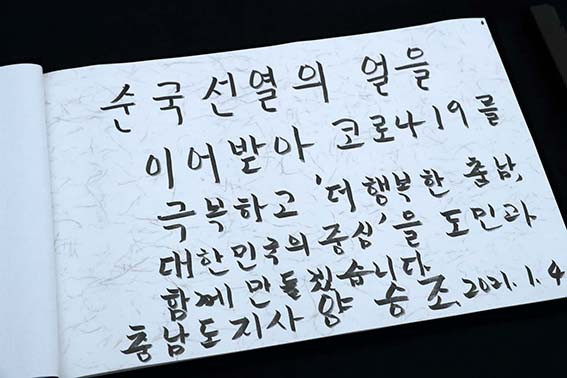 순국선열의 얼을
이어받아 코로나19를
극복하고 '더 행복한 충남,
대한민국의 중심'을 도민과
함께 만들겠습니다
충남도지사 양승조 2021. 1. 4